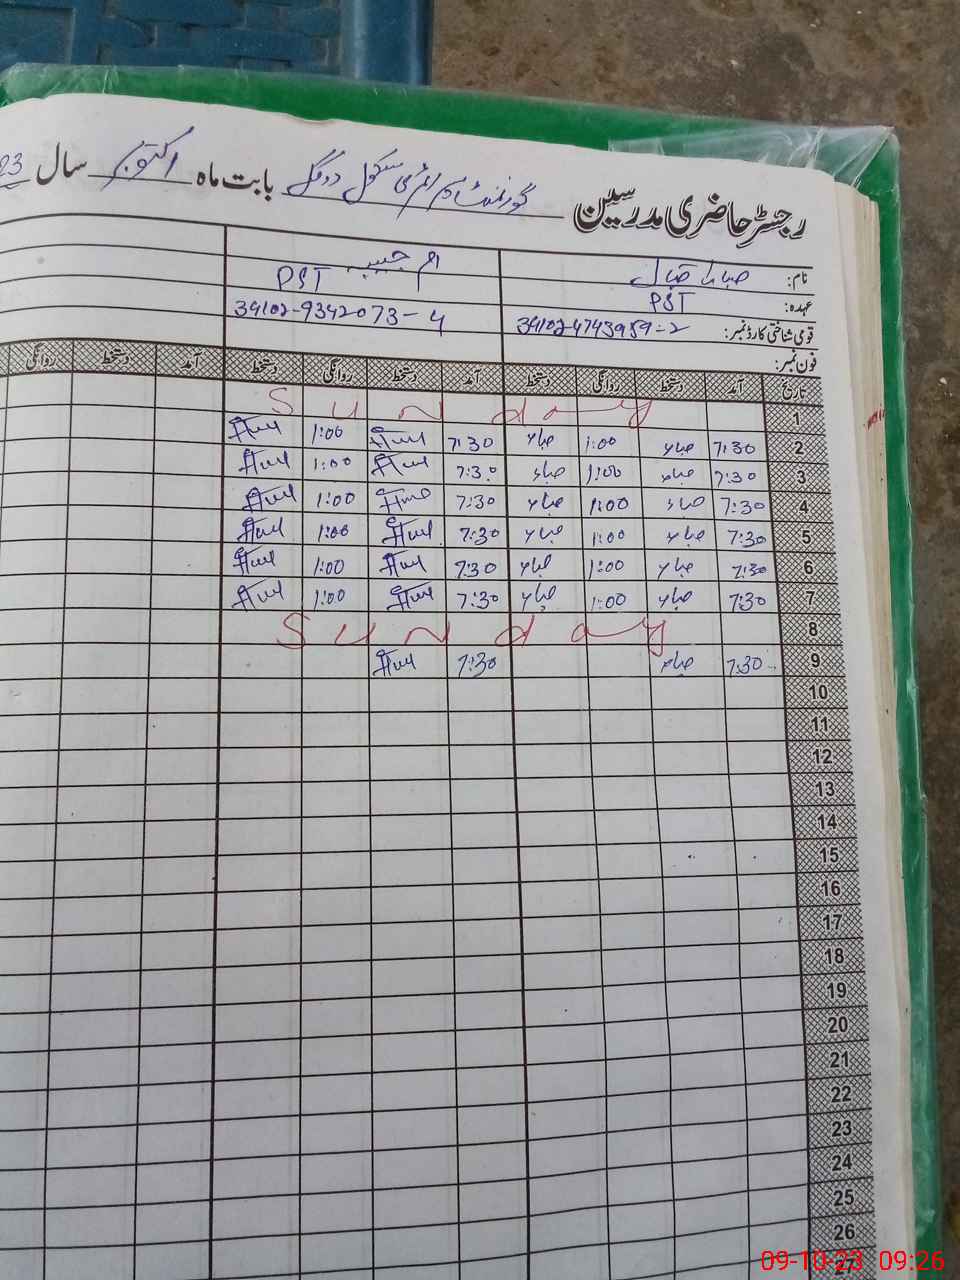 رجسٹر حاضری مدرسین گورنمنٹ ایم سی سکول بابت ماہ اکتوبر سال 23
نام: صبا اقبال ام حبیبہ
عہدہ: PST PST
قومی شناختی کارڈ نمبر: 34102-4743959-2 34102-9342073-4
فون نمبر:
تاریخ آمد دستخط روانگی دستخط آمد دستخط روانگی دستخط آمد دستخط روانگی
1 Sunday
2 7:30 صباء 1:00 صباء 7:30 1:00
3 7:30 صباء 1:00 صباء 7:30 1:00
4 7:30 صباء 1:00 صباء 7:30 1:00
5 7:30 صباء 1:00 صباء 7:30 1:00
6 7:30 صباء 1:00 صباء 7:30 1:00
7 7:30 صباء 1:00 صباء 7:30 1:00
8 Sunday
9 7:30 صباء 7:30
10
11
12
13
14
15
16
17
18
19
20
21
22
23
24
25
26
27
09-10-23 09:26